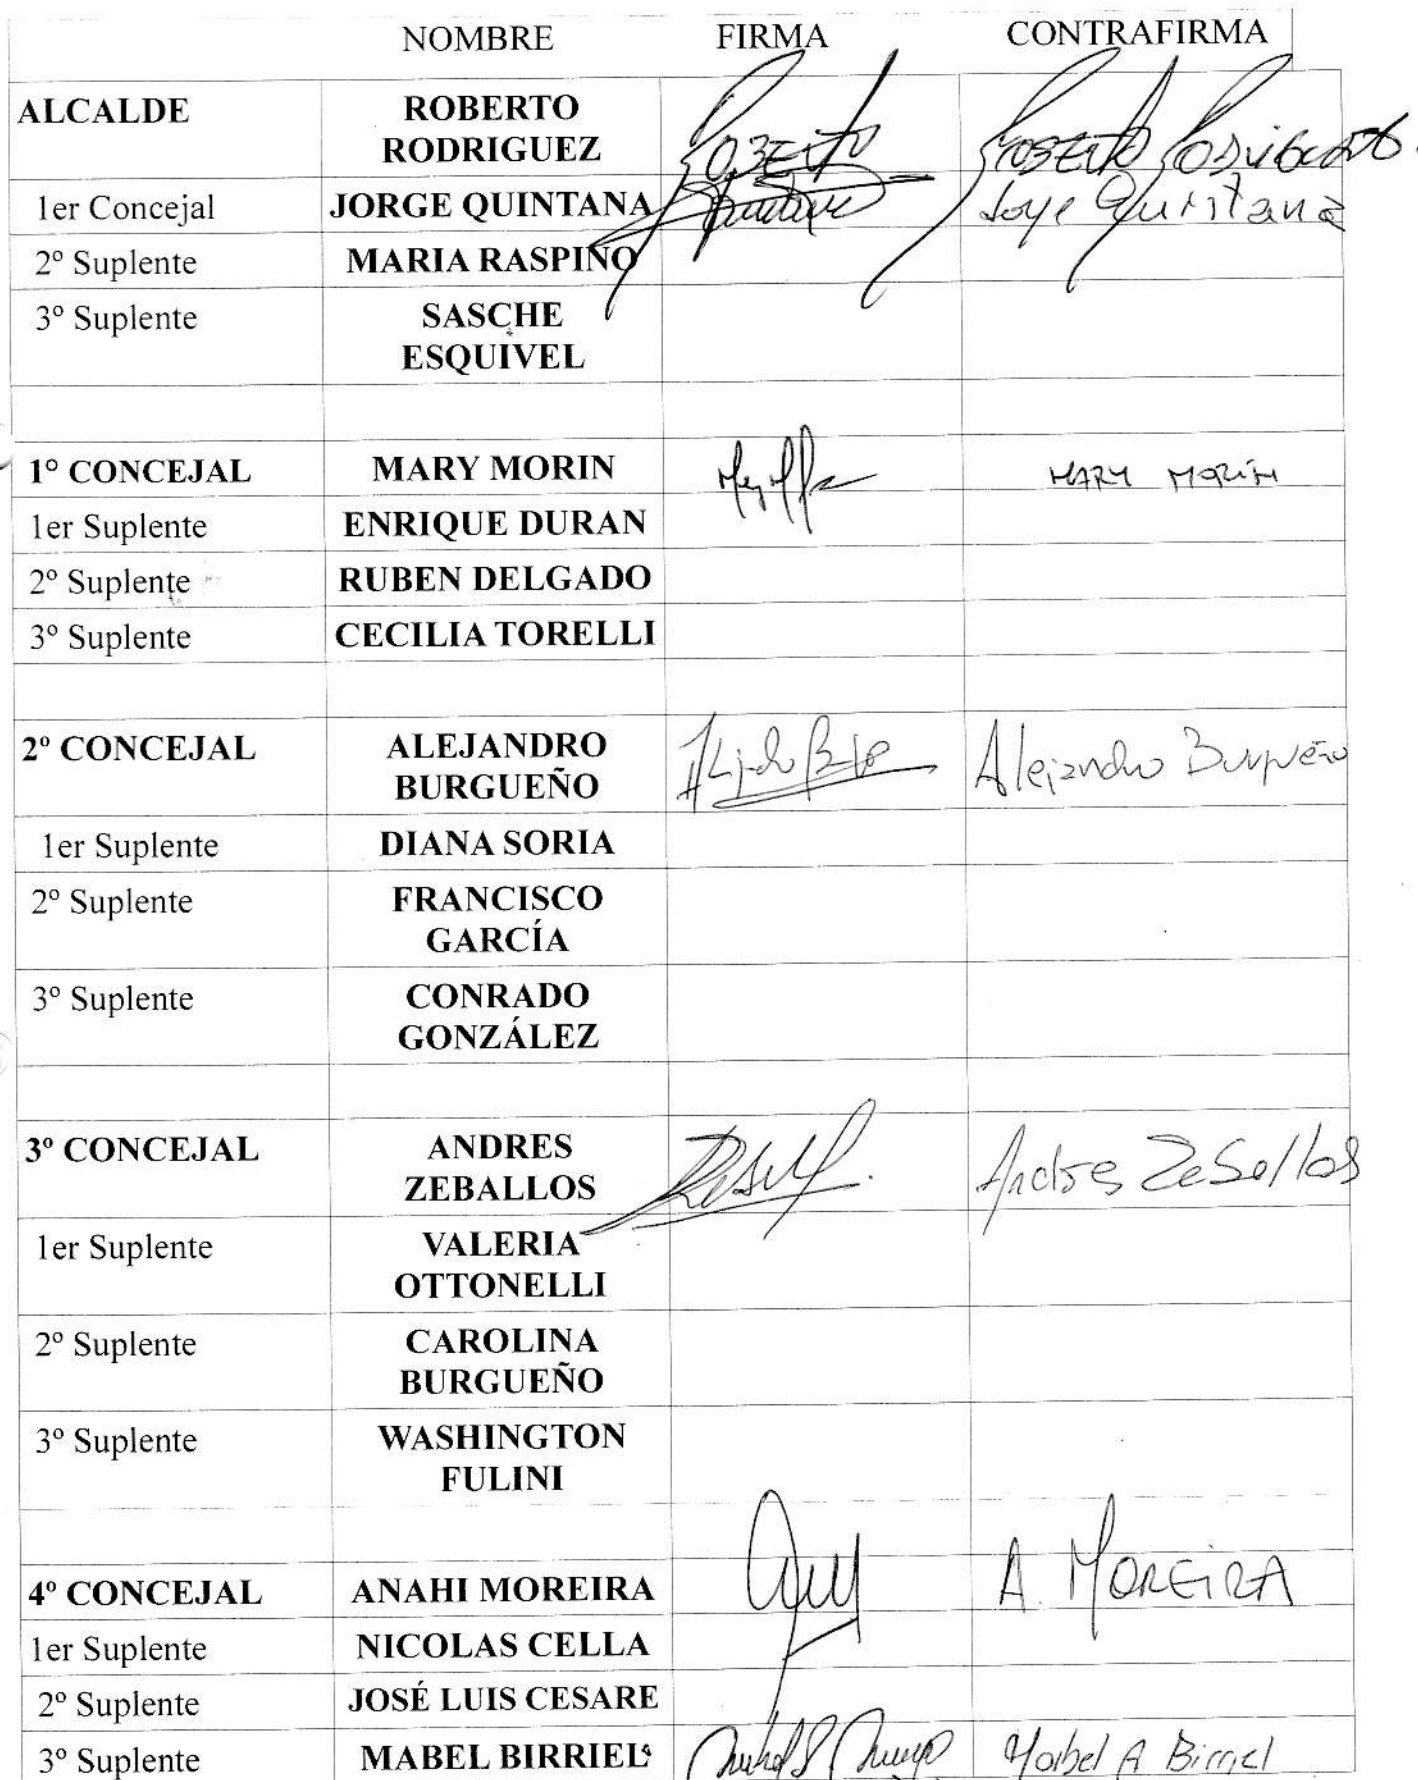 NOMBRE FIRMA CONTRAFIRMA
ALCALDE ROBERTO RODRIGUEZ ROBERTO ROBERTO RODRIGUEZ
1er Concejal JORGE QUINTANA Jorge Quintana
2º Suplente MARIA RASPINO
3º Suplente SASCHE ESQUIVEL
1º CONCEJAL MARY MORIN MARY MORIN
1er Suplente ENRIQUE DURAN
2º Suplente RUBEN DELGADO
3º Suplente CECILIA TORELLI
2º CONCEJAL ALEJANDRO BURGUEÑO Alejandro Burgueño
1er Suplente DIANA SORIA
2º Suplente FRANCISCO GARCÍA
3º Suplente CONRADO GONZÁLEZ
3º CONCEJAL ANDRES ZEBALLOS Andres Zeballos
1er Suplente VALERIA OTTONELLI
2º Suplente CAROLINA BURGUEÑO
3º Suplente WASHINGTON FULINI
4º CONCEJAL ANAHI MOREIRA A. MOREIRA
1er Suplente NICOLAS CELLA
2º Suplente JOSÉ LUIS CESARE
3º Suplente MABEL BIRRIEL Mabel A Birriel